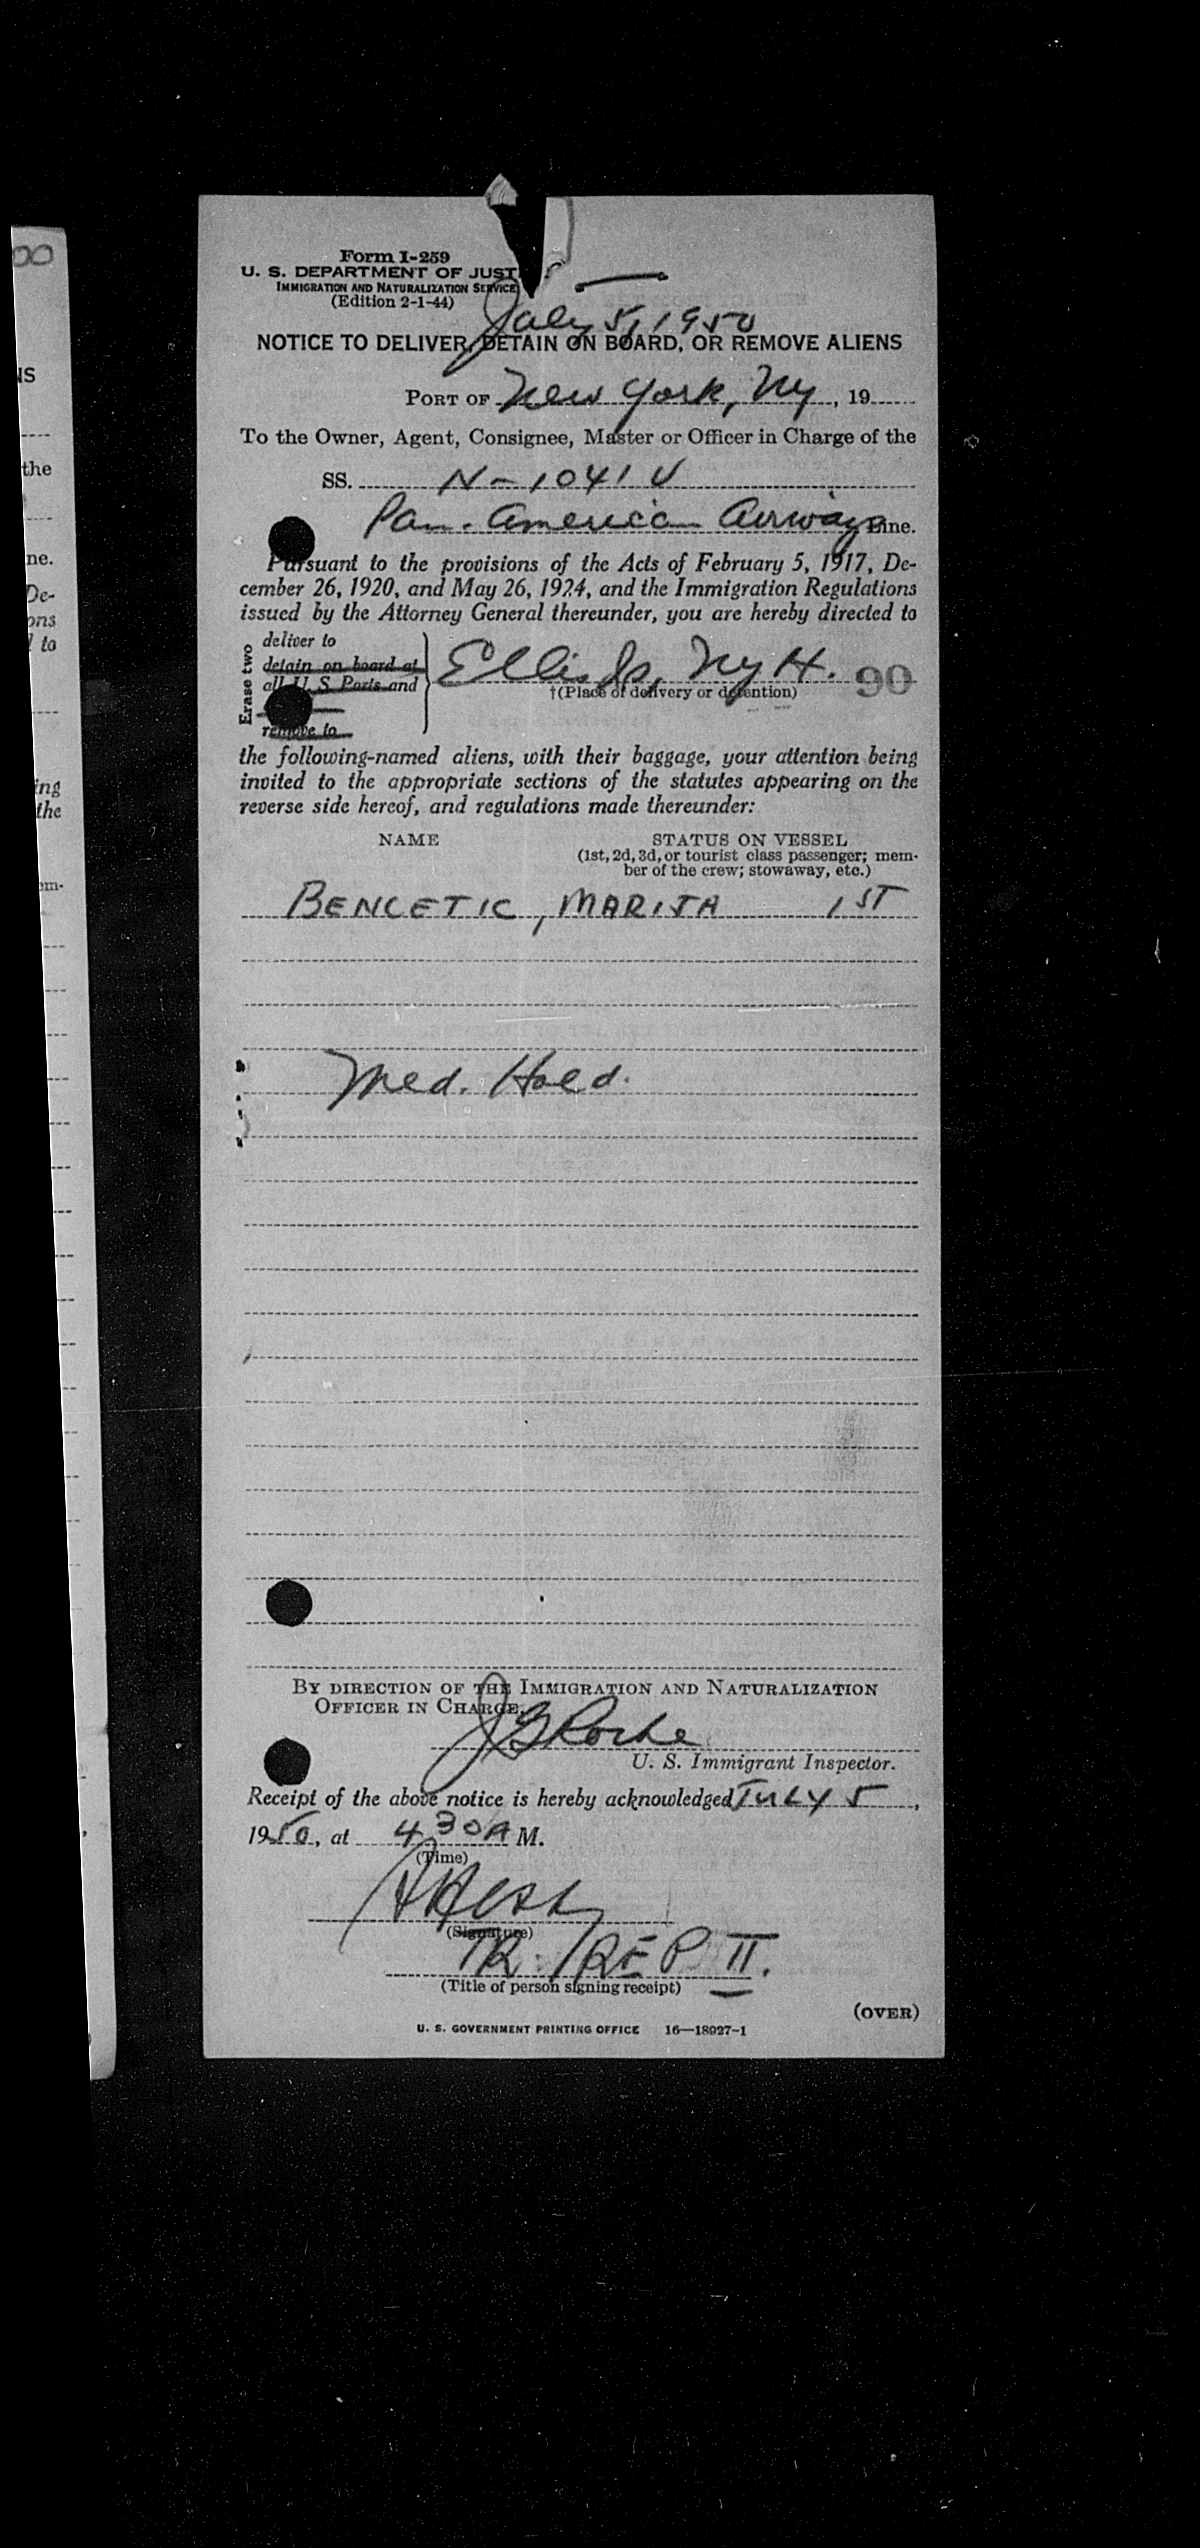 00
NS
the
ne.
De-
ons
l to
ing
the
em-
Form I-259
U. S. DEPARTMENT OF JUST
IMMIGRATION AND NATURALIZATION SERVICE
(Edition 2-1-44)
July 5, 1950
NOTICE TO DELIVER, DETAIN ON BOARD, OR REMOVE ALIENS
PORT OF New York, NY, 19
To the Owner, Agent, Consignee, Master or Officer in Charge of the
SS. N-1041V
Pan. American Airways Line.
Pursuant to the provisions of the Acts of February 5, 1917, De-
cember 26, 1920, and May 26, 1924, and the Immigration Regulations
issued by the Attorney General thereunder, you are hereby directed to
Erase two
deliver to
detain on board at
all U. S. Ports and
remove to
Ellis Is, NYH. 90
†(Place of delivery or detention)
the following-named aliens, with their baggage, your attention being
invited to the appropriate sections of the statutes appearing on the
reverse side hereof, and regulations made thereunder:
NAME STATUS ON VESSEL
(1st, 2d, 3d, or tourist class passenger; mem-
ber of the crew; stowaway, etc.)
BENCETIC, MARIJA 1ST
Med. Hold.
BY DIRECTION OF THE IMMIGRATION AND NATURALIZATION
OFFICER IN CHARGE,
JG Roche
U. S. Immigrant Inspector.
Receipt of the above notice is hereby acknowledged JULY 5,
1950, at 430A M.
(Time)
(Signature)
TR. REP II.
(Title of person signing receipt)
(OVER)
U. S. GOVERNMENT PRINTING OFFICE 16—18027-1